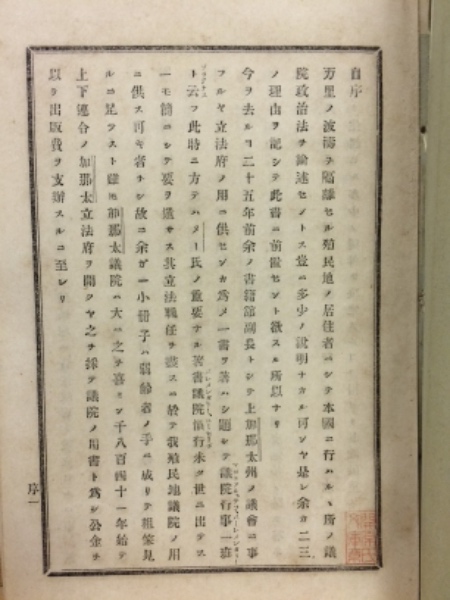 自序
万里ノ波濤ヲ隔離セル殖民地ノ居住者ニシテ本國ニ行ハルヽ所ノ議
院政治法ヲ論述セントス豈ニ多少ノ説明ナカル可ンヤ是レ余カ二三
ノ理由ヲ記シテ此書ニ前置セント欲スル所以ナリ
今ヲ去ルコ二十五年前余ノ書籍館副長トシテ上加那太州ノ議會ニ事
フルヤ立法府ノ用ニ供センカ爲メ一書ヲ著ハシ題シテ議院行事一班
ト云フ此時ニ方テハメー氏ノ重要ナル著書議院慣行未タ世ニ出テス
一モ簡ニシテ要ヲ盡セス其立法職任ヲ盡スニ於テ我殖民地議院ノ用
ニ供ス可キ者ナシ故ニ余ガ一小冊子ハ弱齢者ノ手ニ成リテ粗笨見
ルニ足ラスト雖モ加那太議院ハ大ニ之ヲ喜ミシ千八百四十一年始テ
上下連合ノ加那太立法府ヲ開クヤ之ヲ採テ議院ノ用書ト爲シ公金ヲ
以テ出版費ヲ支辨スルニ至レリ
序一